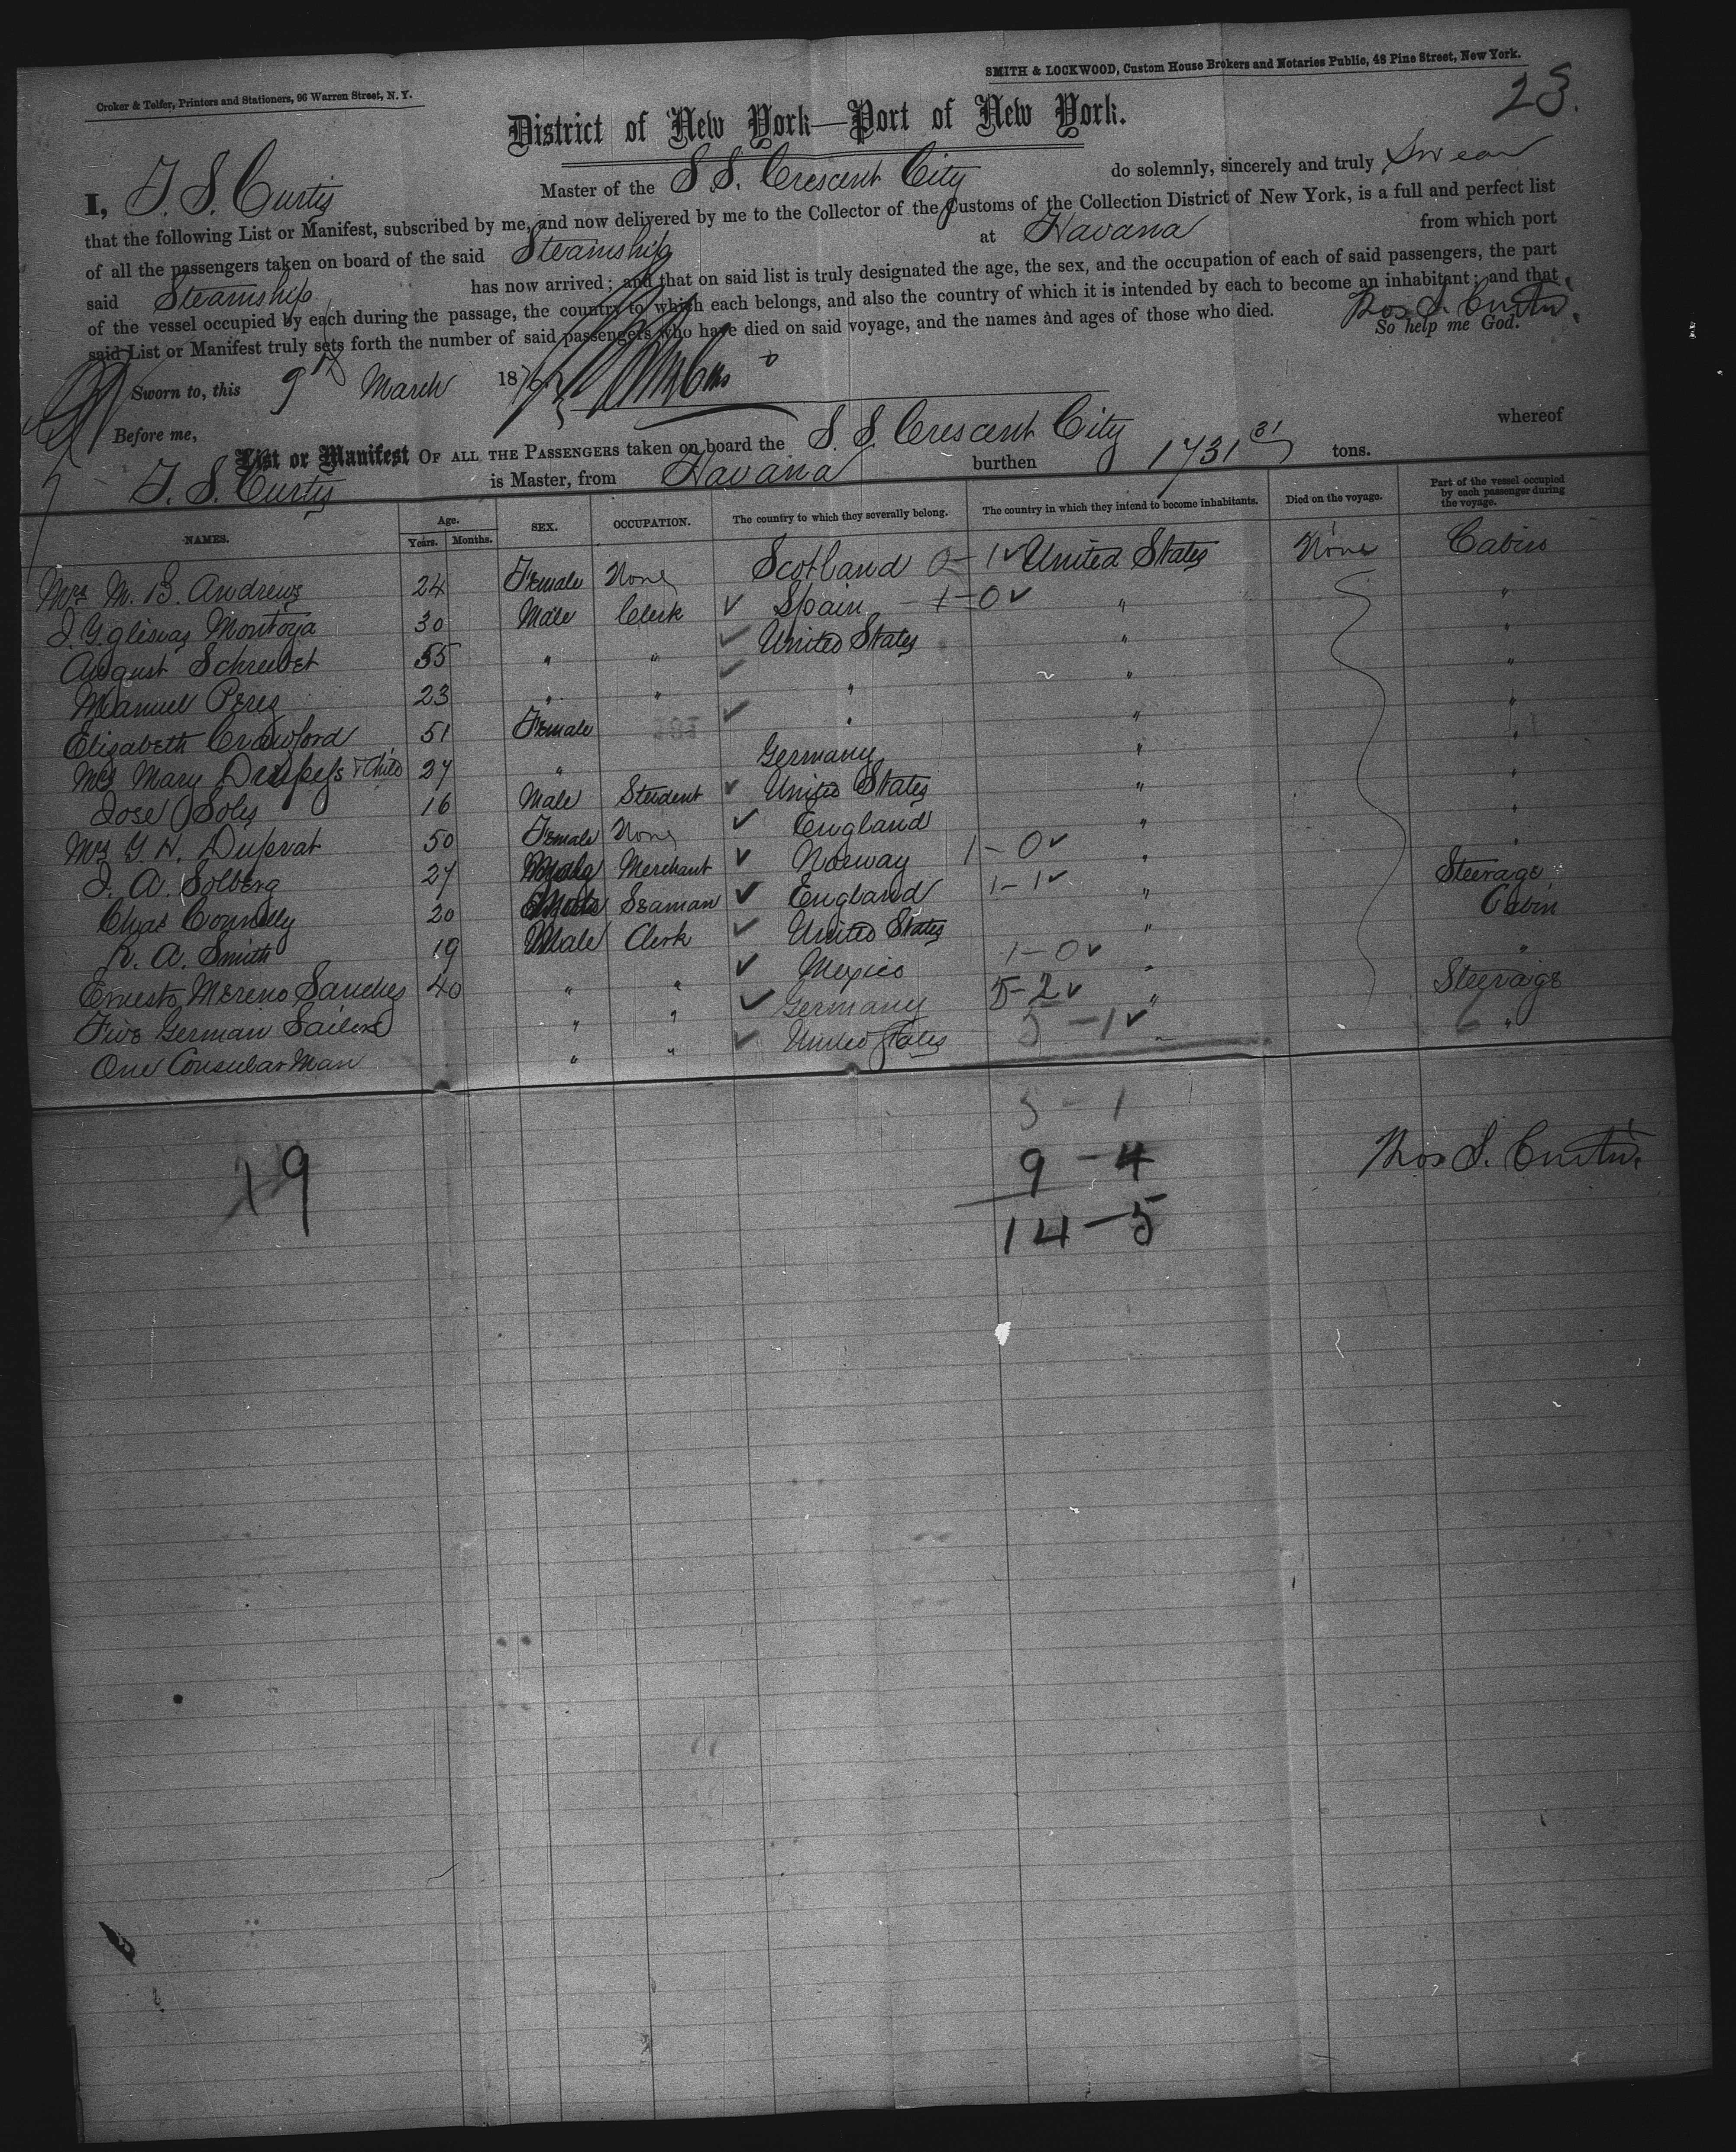 Croker & Telfer, Printers and Stationers, 96 Warren Street, N. Y.
SMITH & LOCKWOOD, Custom House Brokers and Notaries Public, 48 Pine Street, New York.
23.
District of New York—Port of New York.
I, T. S. Curtis Master of the S. S. Crescent City do solemnly, sincerely and truly Swear
that the following List or Manifest, subscribed by me, and now delivered by me to the Collector of the Customs of the Collection District of New York, is a full and perfect list
of all the passengers taken on board of the said Steamship at Havana from which port
said Steamship has now arrived; and that on said list is truly designated the age, the sex, and the occupation of each of said passengers, the part
of the vessel occupied by each during the passage, the country to which each belongs, and also the country of which it is intended by each to become an inhabitant; and that
said List or Manifest truly sets forth the number of said passengers who have died on said voyage, and the names and ages of those who died. Thos S. Curtis.
So help me God.
Sworn to, this 9th March 187
Before me,
List or Manifest OF ALL THE PASSENGERS taken on board the S. S. Crescent City whereof
T. S. Curtis is Master, from Havana burthen 1731 31 tons.
NAMES. Age. Years. Months. SEX. OCCUPATION. The country to which they severally belong. The country in which they intend to become inhabitants. Died on the voyage. Part of the vessel occupied by each passenger during the voyage.
Mrs M. B. Andrews 24 Female None Scotland 0-1 ✓ United States None Cabin
J. Yglesias Montoya 30 Male Clerk ✓ Spain 1-0 ✓ " "
August Schreiber 55 " " ✓ United States " "
Manuel Perez 23 " " ✓ " " "
Elizabeth Crawford 51 Female ✓ " " "
Mrs Mary & Child 27 " Germany " "
Jose Soles 16 Male Student ✓ United States " "
Mrs G. H. Duprat 50 Female None ✓ England " "
J. A. Solberg 27 Male Merchant ✓ Norway 1-0 ✓ " "
Chas Connelly 20 Male Seaman ✓ England 1-1 ✓ " Steerage
R. A. Smith 19 Male Clerk ✓ United States " Cabin
Ernesto Moreno Sanchez 40 " " ✓ Mexico 1-0 ✓ " "
Five German Sailors " " ✓ Germany 5-2 ✓ " Steerage
One Consular Man " " ✓ United States 5-1 ✓ " 6 "
5-1
19 9-4 Thos S. Curtis.
14-5